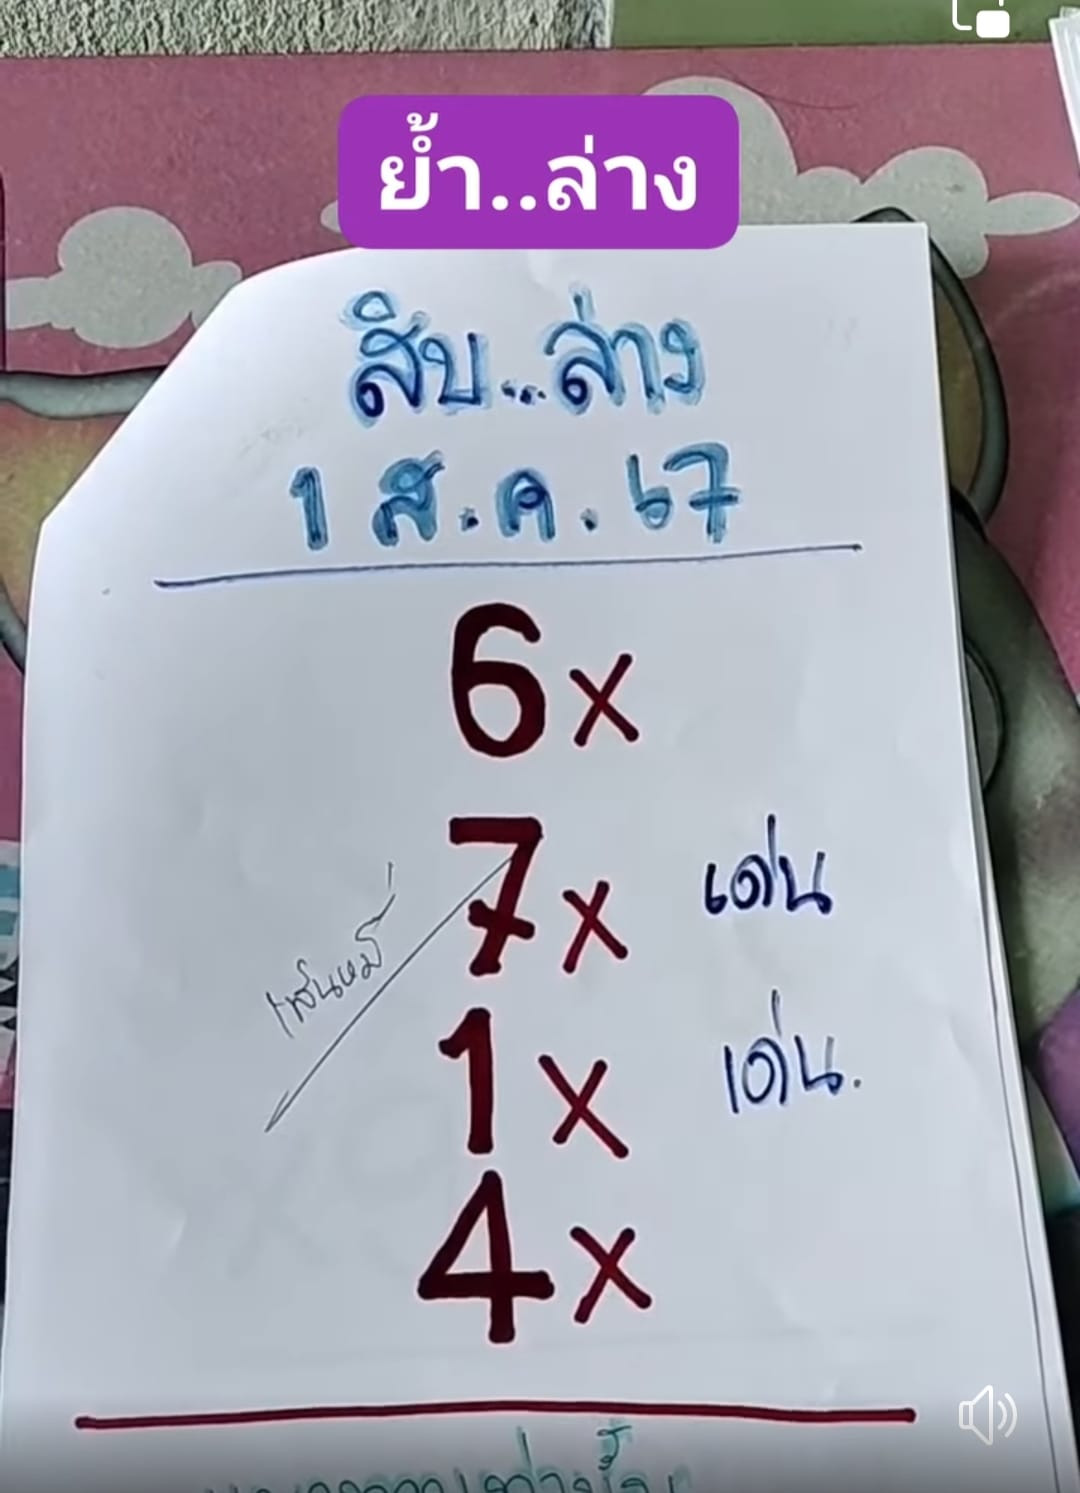 ย้ำ..ล่าง
สิบ...ล่าง
1 ส.ค.67
6x
7x เด่น
เสน่ห์
1x เด่น.
4x